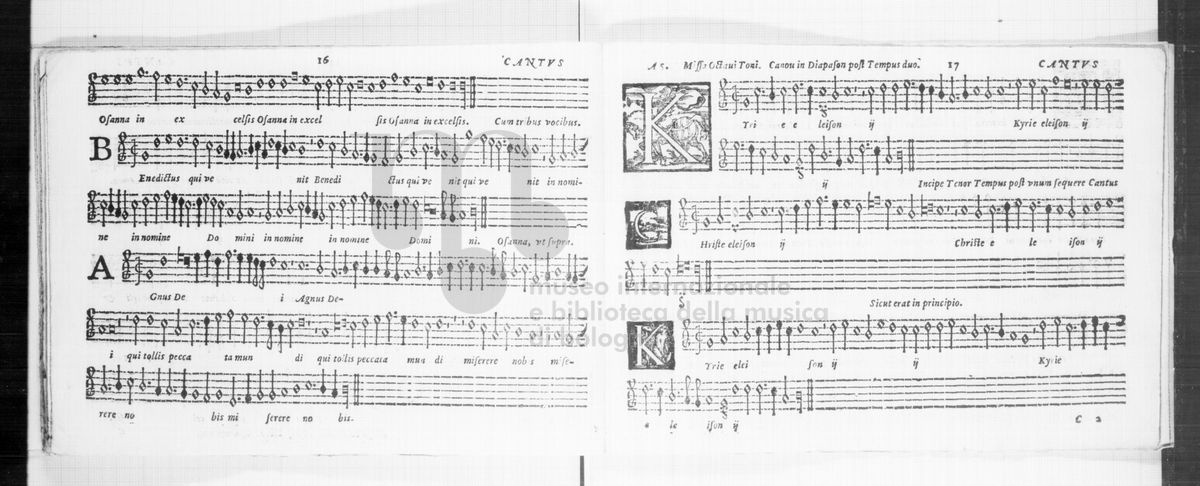 16 CANTVS
Oſanna in ex celſis Oſanna in excel ſis Oſanna in excelſis. Cum tribus vocibus.
B
Enedictus qui ve nit Benedi ctus qui ve nit qui ve nit in nomi-
ne in nomine Do mini in nomine in nomine Domi ni. Oſanna, vt ſupra.
A
Gnus De i Agnus De-
i qui tollis pecca ta mun di qui tollis peccata mun di miſerere nobis miſe-
rere no bis mi ſerere no bis.
Miſſa Octaui Toni. Canon in Diapaſon poſt Tempus duo. 17 CANTVS
K
Yri e e leiſon ij Kyrie eleiſon ij
ij Incipe Tenor Tempus poſt vnum ſequere Cantus
C
Hriſte eleiſon ij Chriſte e le iſon ij
Sicut erat in principio.
K
Yrie elei ſon ij ij Kyrie
e le iſon ij
C 2
museo internazionale
e biblioteca della musica
di bologna